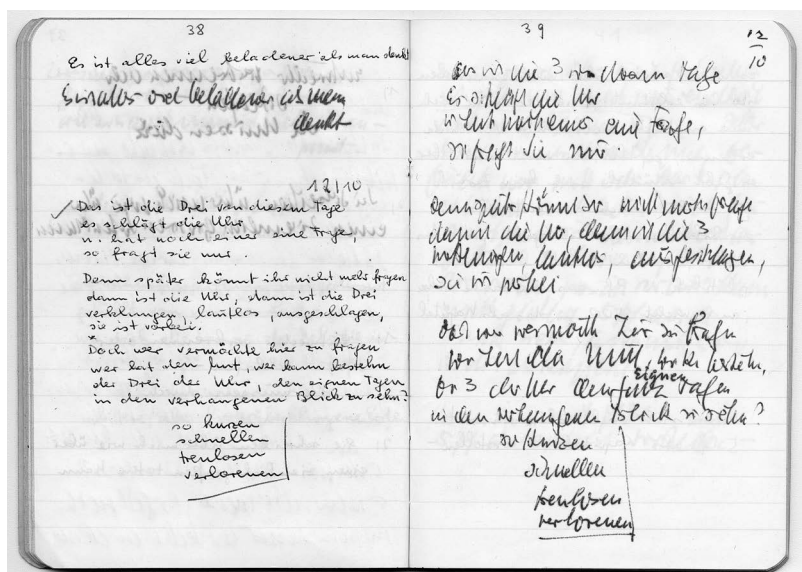 38
Es ist alles viel beladener als man denkt
Es ist alles viel beladener als man
denkt
12/10
Das ist die Drei von diesem Tage
es schlägt die Uhr
u. hat noch einer eine Frage,
so fragt sie nur.
Denn später könnt ihr nicht mehr fragen
dann ist die Uhr, dann ist die Drei
verklungen, lautlos, ausgeschlagen,
sie ist vorbei.
Doch wer vermöchte hier zu fragen
wer hat den Mut, wer kann bestehn
der Drei der Uhr, den eignen Tagen
in den verhangenen Blick zu sehn?
so kurzen
schnellen
treulosen
verlorenen
39
12/10
die 3 von Tage
es schlägt die Uhr
eine Frage,
so fragt sie nur.
Denn später könnt nicht mehr
dann die Uhr, dann ist die 3
lautlos, ausgeschlagen,
sie ist vorbei
doch wer vermöcht hier zu fragen
wer hat den Mut, wer
3 der Uhr den eignen Tagen
in den verhangenen Blick zu sehn?
so kurzen
schnellen
treulosen
verlorenen